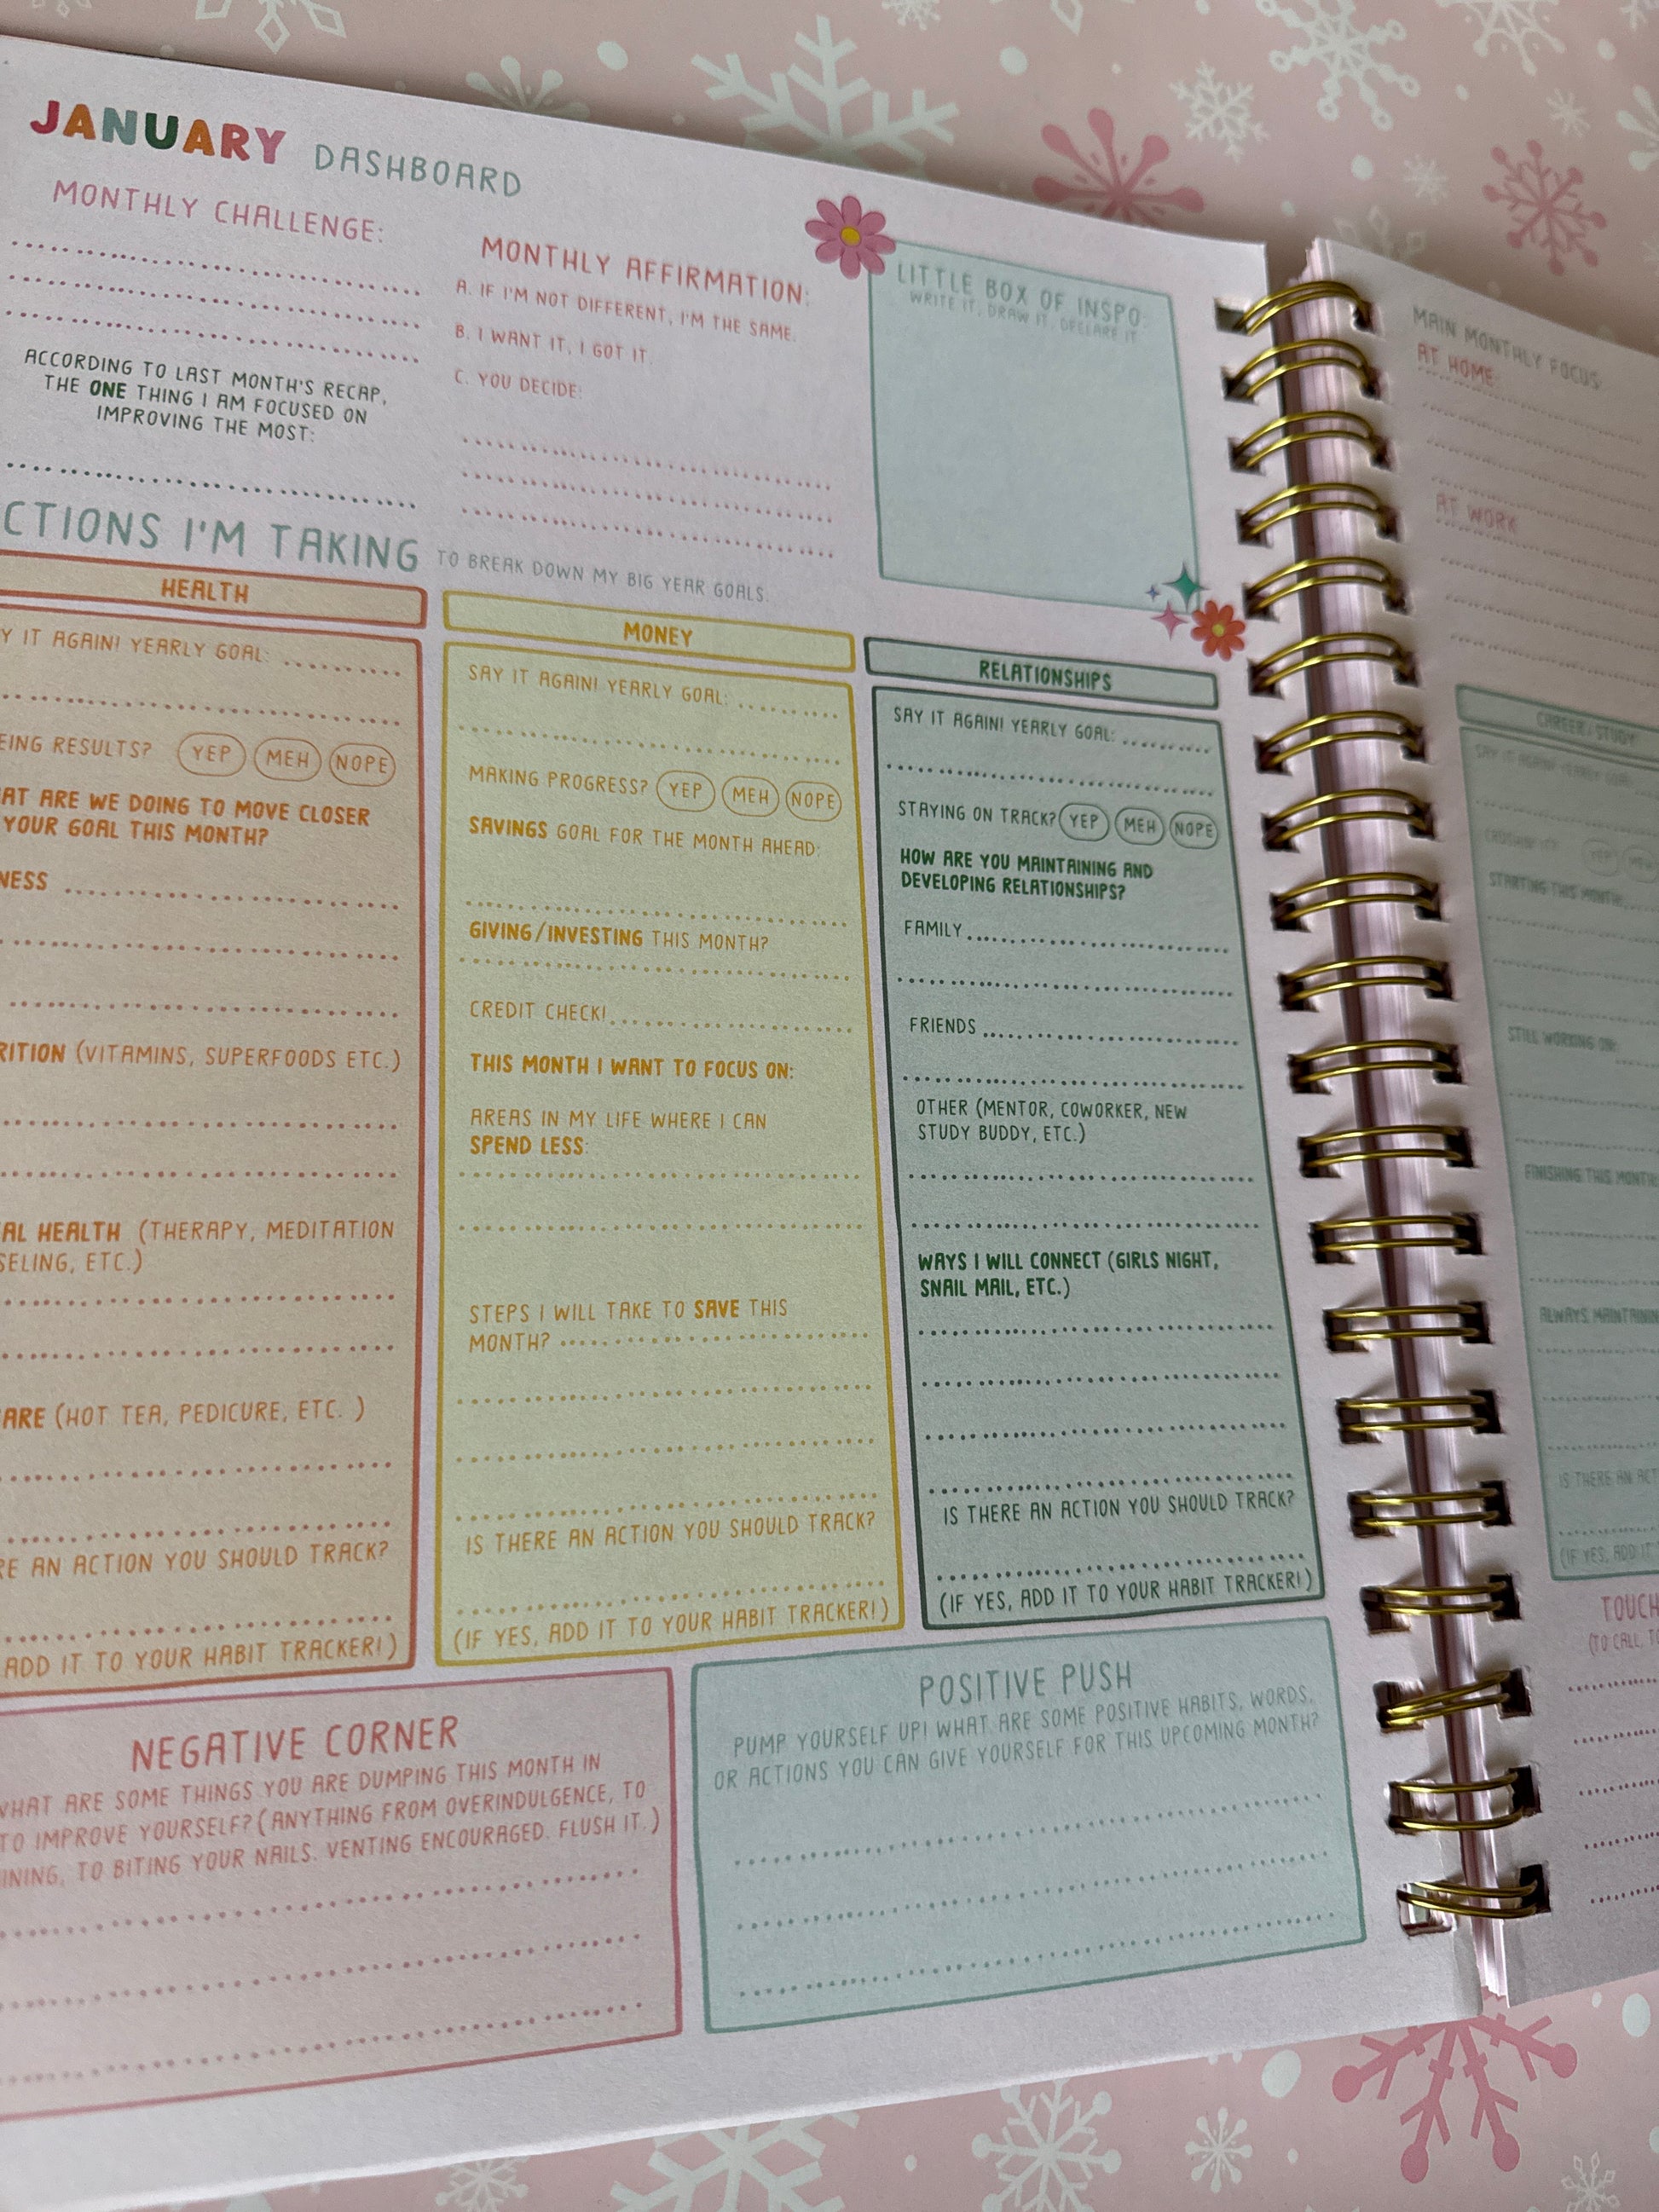 JANUARY DASHBOARD
MONTHLY CHALLENGE:
ACCORDING TO LAST MONTH'S RECAP,
THE ONE THING I AM FOCUSED ON
IMPROVING THE MOST:
MONTHLY AFFIRMATION:
A. IF I'M NOT DIFFERENT, I'M THE SAME.
B. I WANT IT, I GOT IT.
C. YOU DECIDE:
LITTLE BOX OF INSPO:
WRITE IT, DRAW IT, DECLARE IT
CTIONS I'M TAKING TO BREAK DOWN MY BIG YEAR GOALS.
HEALTH
Y IT AGAIN! YEARLY GOAL:
EING RESULTS? YEP MEH NOPE
AT ARE WE DOING TO MOVE CLOSER
YOUR GOAL THIS MONTH?
NESS
RITION (VITAMINS, SUPERFOODS ETC.)
AL HEALTH (THERAPY, MEDITATION
SELING, ETC.)
ARE (HOT TEA, PEDICURE, ETC. )
RE AN ACTION YOU SHOULD TRACK?
ADD IT TO YOUR HABIT TRACKER!)
MONEY
SAY IT AGAIN! YEARLY GOAL:
MAKING PROGRESS? YEP MEH NOPE
SAVINGS GOAL FOR THE MONTH AHEAD:
GIVING/INVESTING THIS MONTH?
CREDIT CHECK!
THIS MONTH I WANT TO FOCUS ON:
AREAS IN MY LIFE WHERE I CAN
SPEND LESS:
STEPS I WILL TAKE TO SAVE THIS
MONTH?
IS THERE AN ACTION YOU SHOULD TRACK?
(IF YES, ADD IT TO YOUR HABIT TRACKER!)
RELATIONSHIPS
SAY IT AGAIN! YEARLY GOAL:
STAYING ON TRACK? YEP MEH NOPE
HOW ARE YOU MAINTAINING AND
DEVELOPING RELATIONSHIPS?
FAMILY
FRIENDS
OTHER (MENTOR, COWORKER, NEW
STUDY BUDDY, ETC.)
WAYS I WILL CONNECT (GIRLS NIGHT,
SNAIL MAIL, ETC.)
IS THERE AN ACTION YOU SHOULD TRACK?
(IF YES, ADD IT TO YOUR HABIT TRACKER!)
NEGATIVE CORNER
WHAT ARE SOME THINGS YOU ARE DUMPING THIS MONTH IN
TO IMPROVE YOURSELF? (ANYTHING FROM OVERINDULGENCE, TO
INING, TO BITING YOUR NAILS. VENTING ENCOURAGED. FLUSH IT.)
POSITIVE PUSH
PUMP YOURSELF UP! WHAT ARE SOME POSITIVE HABITS, WORDS,
OR ACTIONS YOU CAN GIVE YOURSELF FOR THIS UPCOMING MONTH?
MAIN MONTHLY FOCUS:
AT HOME:
AT WORK
CAREER/STUDY
SAY IT AGAIN! YEARLY GOAL:
YEP MEH
STARTING THIS MONTH:
STILL WORKING ON:
FINISHING THIS MONTH:
ALWAYS MAINTAININ
IS THERE AN ACT
(IF YES, ADD IT
TOUCH
(TO CALL, TO